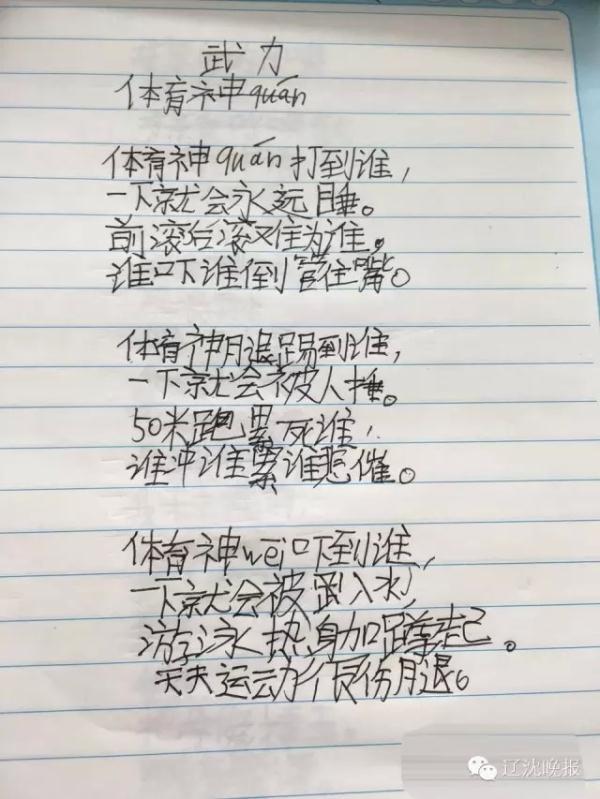 武力
体育神quán
体育神quán打到谁，
一下就会永远睡。
前滚后滚双难为谁。
谁吓谁倒管住嘴。
体育神腿踢到谁，
一下就会被人捶。
50米跑累死谁，
谁冲谁累谁悲催。
体育神wei吓到谁，
一下就会被踢入水，
游泳热身加蹲起。
天天运动很伤腿。
辽沈晚报